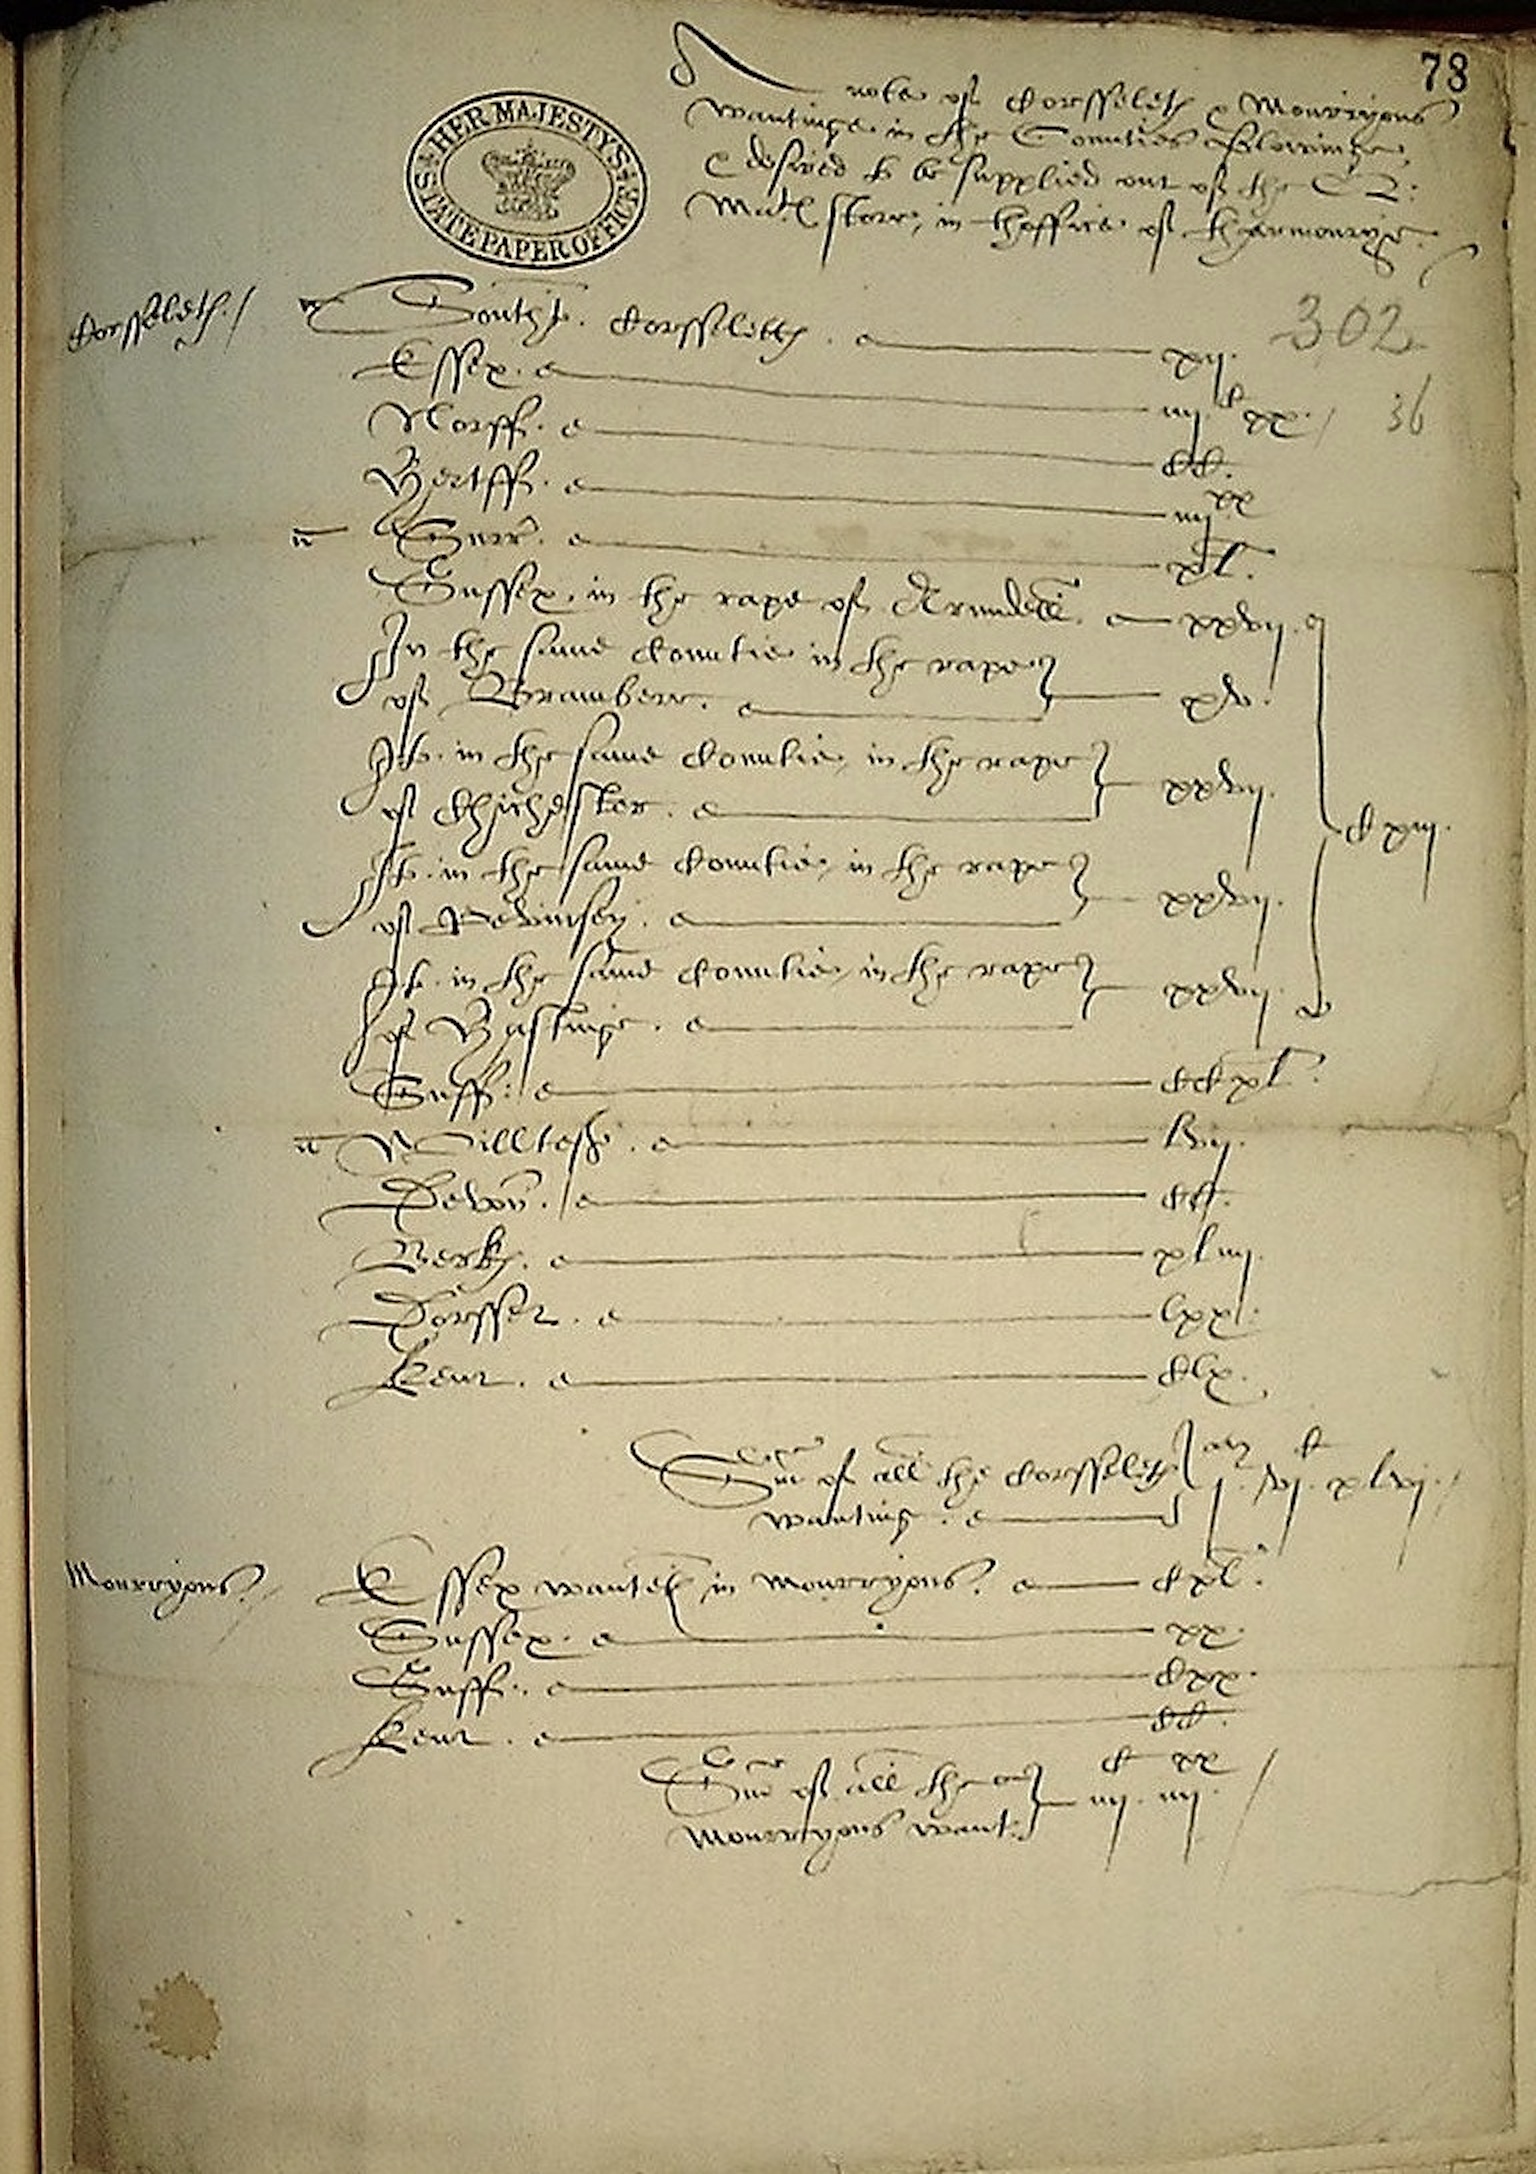 78
HER MAJESTY'S STATE PAPER OFFICE
A note of Corsseletℯ & Mourryons
wantinge in the Counties followinge
& desired to be supplied out of the Q:
Matℯ store, in thoffice of tharmourye.
Corsseletℯ./
Southt. Corsselettℯ. xij.
302
Essex. iiij c xx./
36
Norff. CC.
Hertff. iiij xx
Surr. xl.
Sussex. in the rape of Arundell. xxvij.
In the same Countie in the rape
of Bramber. xv.
It. in the same Countie, in the rape
of Chichester. xxvij.
C xiij.
It. in the same Countie, in the rape
of Pevinsey. xxvij.
It. in the same Countie, in the rape
of Hastinge. xxvij.
Suff: CCxl.
Willtesh. lvij.
Devon. CC.
Berkℯ. xliiij.
Dorsset. lxx.
Kent. Clx.
Sum of all the Corsseletℯ j. vj. c xlvj./
wanting.
Mourryons./
Essex wanteth in mourryons. Cxl.
Sussex. xx.
Suff. Cxx.
Kent. CC.
Sum of all the iiij. c iiij. xx /
Mourryons want: